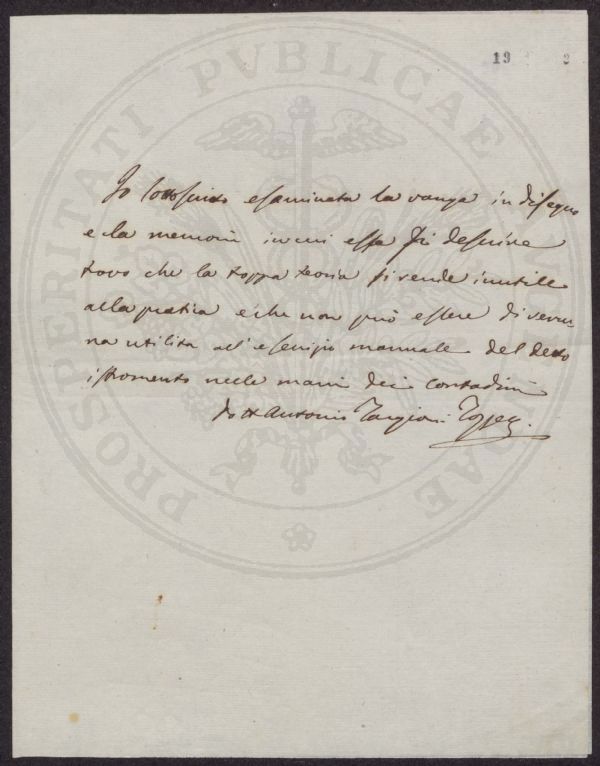 19 2
Io sottoscritto esaminata la vanga in disegno
e la memoria in cui essa si descrive
trovo che la troppa teoria si rende inutile
alla pratica e che non può essere di veru-
na utilità all'esercizio manuale del detto
istromento nelle mani dei contadini
Dott Antonio Targioni Tozzetti
PROSPERITATI PVBLICAE AVGENDAE